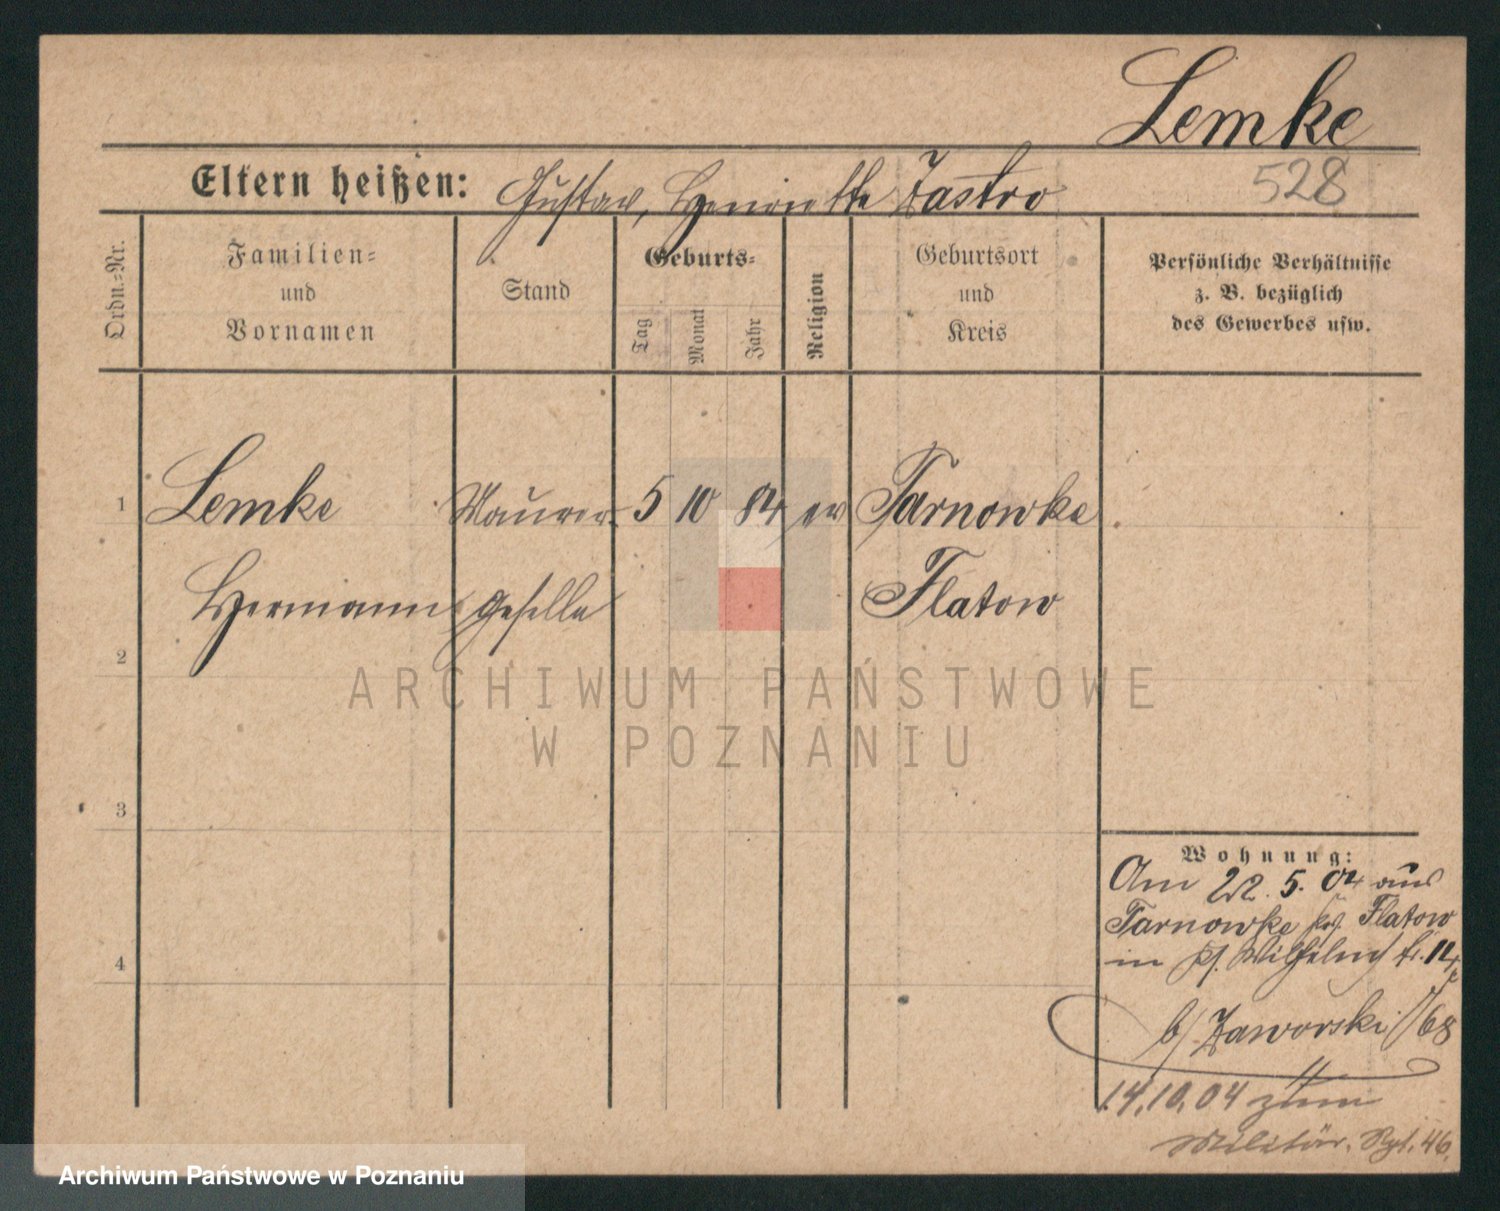 Lemke
528
Eltern heißen: Gustav, Henriette Zastro
Ordn.-Nr.
Familien-
und
Vornamen
Stand
Geburts-
Tag
Monat
Jahr
Religion
Geburtsort
und
Kreis
Persönliche Verhältnisse
z. B. bezüglich
des Gewerbes usw.
1 Lemke Maurer- 5 10 84 ev Tarnowke
Hermann geselle Flatow
2
3
4
ARCHIWUM PAŃSTWOWE
W POZNANIU
Wohnung:
Am 22. 5. 04 aus
Tarnowke Flatow
in Wilhelmstr. 14
b/ Zaworski /68
14.10.04 zum
Militär. Rgt. 46.
Archiwum Państwowe w Poznaniu